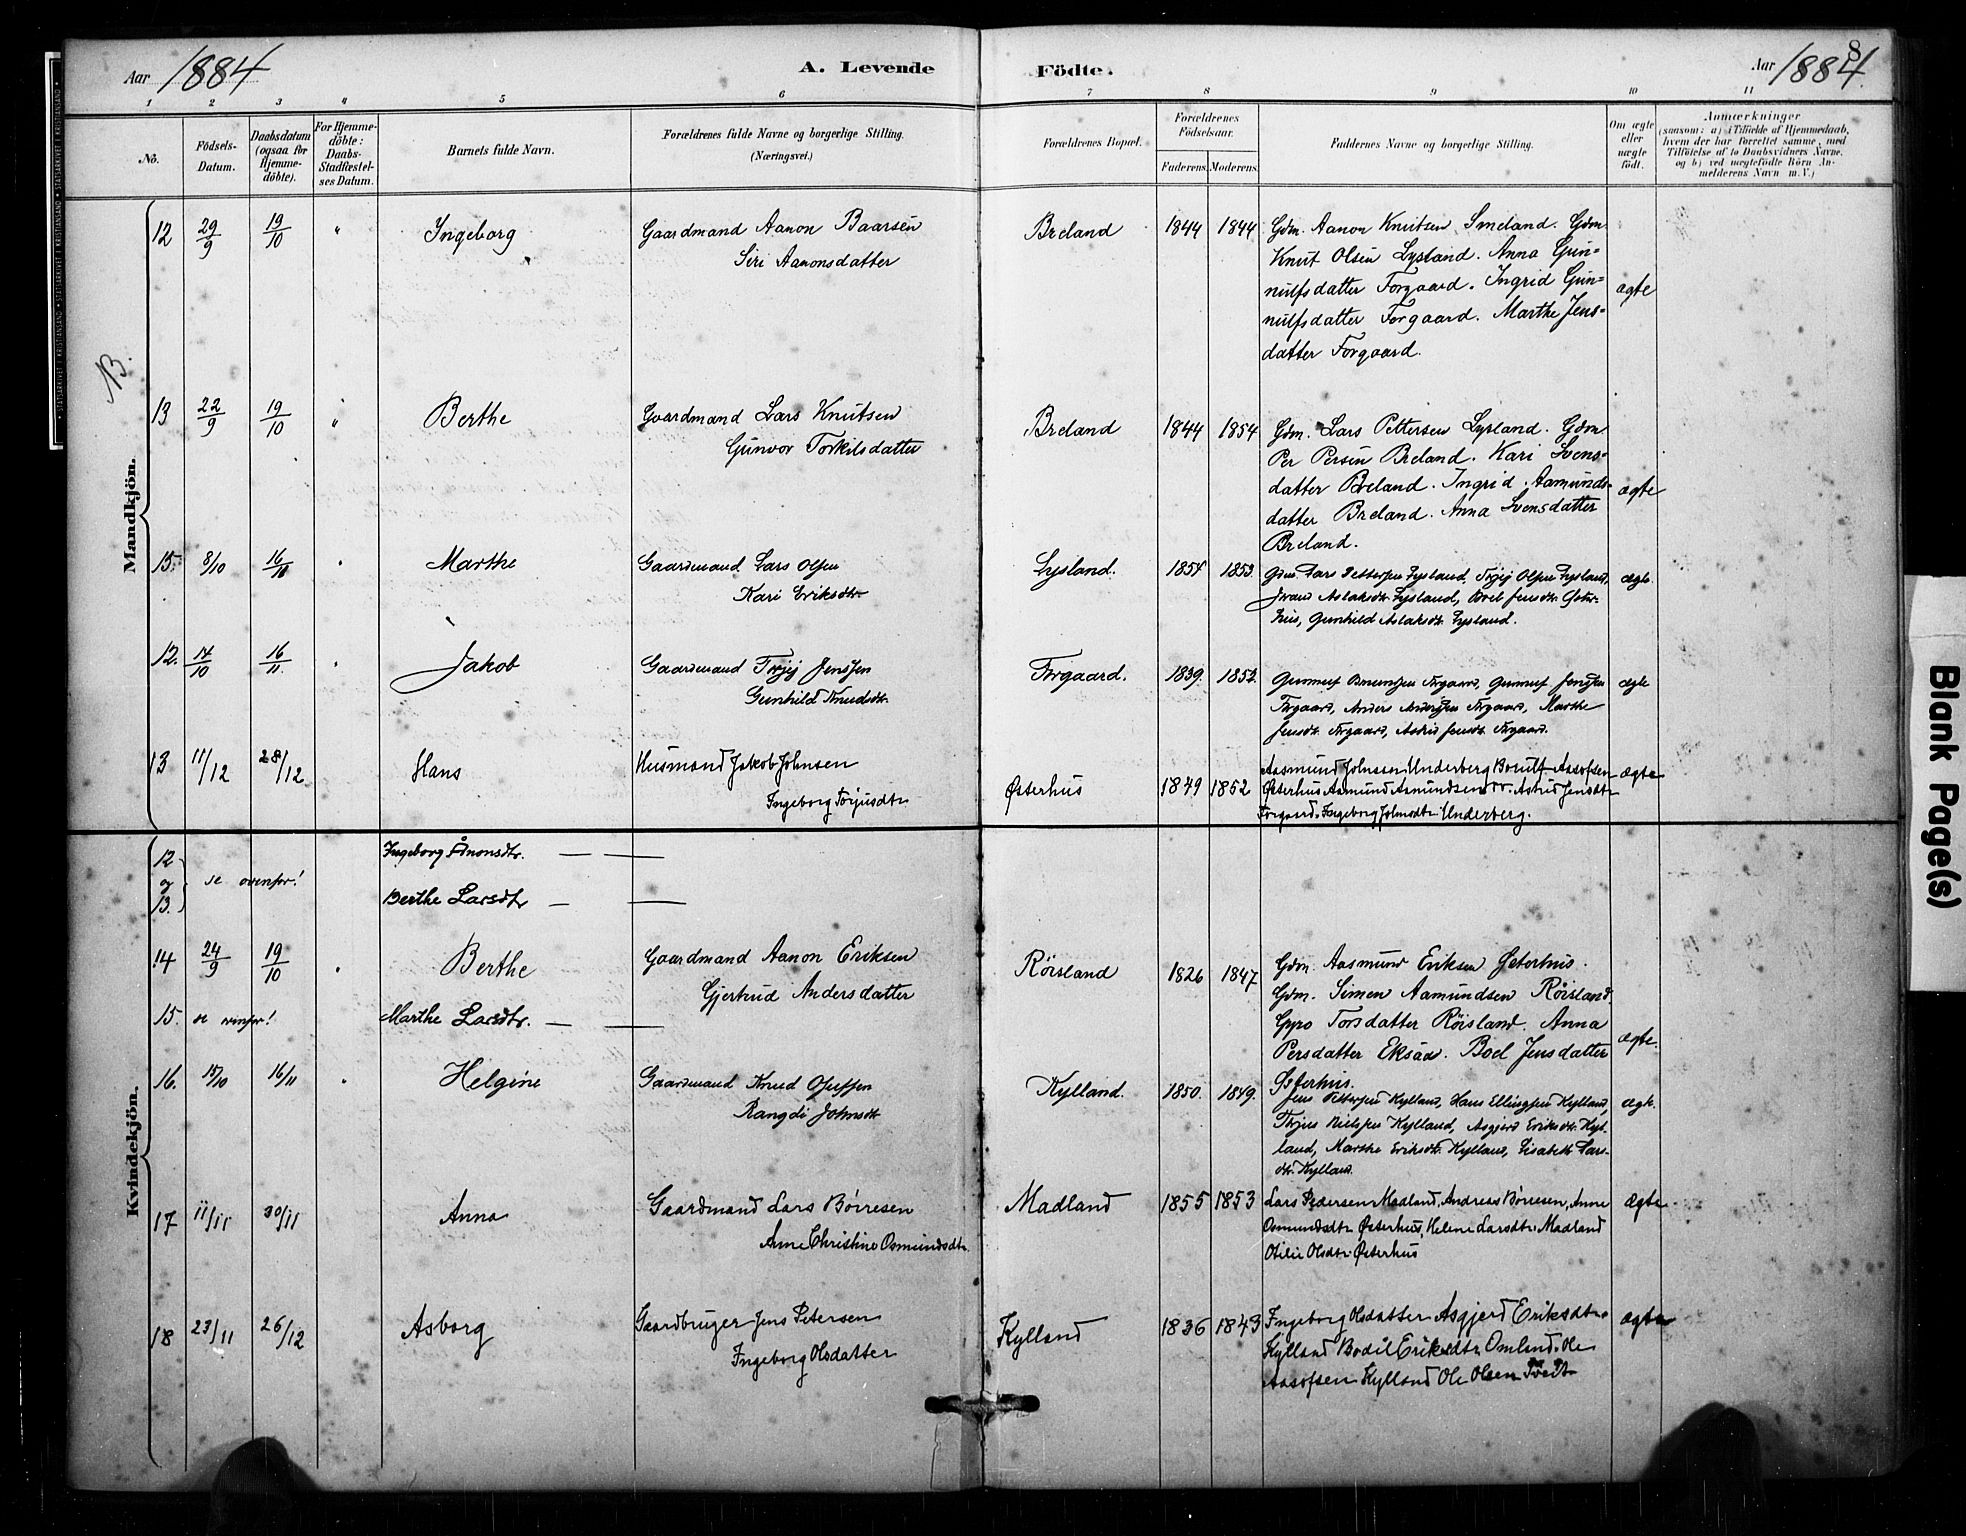 Aar 1884
A. Levende Födte.
Aar 1884
8
1 2 3 4 5 6 7 8 9 10 11
No.
Födsels-Datum.
Daabsdatum (ogsaa för Hjemme-döbte).
For Hjemme-döbte: Daabs-Stadfæstel-ses Datum.
Barnets fulde Navn.
Forældrenes fulde Navne og borgerlige Stilling.
(Næringsvei.)
Forældrenes Bopæl.
Forældrenes Födselsaar.
Faderens. Moderens.
Faddernes Navne og borgerlige Stilling.
Om ægte eller uægte födt.
Anmærkninger
(saasom: a) i Tilfælde af Hjemmedaab,
hvem der har forrettet samme, med
Tilföielse af to Daabsvidners Navne,
og b) ved uægtefödte Börn An-
melderens Navn m. V.)
NB.
Mandkjön.
12 29/9 19/10 " Ingeborg Gaardmand Aanon Baarsen Breland 1844 1844 Gdm. Aanon Knutsen Smeland. Gdm
Siri Aanonsdatter Knut Olsen Lysland. Anna Gun=
nulfsdatter Forgaard. Ingrid Gun= ægte
nulfsdatter Forgaard. Marthe Jens=
datter Forgaard.
13 22/9 19/10 " Berthe Gaardmand Lars Knutsen Breland 1844 1854 Gdm. Lars Pettersen Lysland. Gdm
Gunvor Torkilsdatter Per Persen Breland. Kari Svens=
datter Breland. Ingrid Aamunds= ægte
datter Breland. Anna Svensdatter
Breland.
15. 8/10 16/11 " Marthe Gaardmand Lars Olsen Lysland. 1854 1853. Gdm. Lars Pettersen Lysland, Olsen Lysland, ægte.
Kari Eriksdtr. Aslaksdtr. Lysland, Jensdtr. Øster-
hus, Gunhild Aslaksdtr. Lysland.
12. 17/10 16/11. " Jakob Gaardmand Jenssen Forgaard. 1839. 1852. Forgaard, Jenssen ægte
Gunhild Knudsdtr. Forgaard, Anders Forgaard, Marthe
Jensdtr. Forgaard, Jensdtr. Forgaard.
13 11/12 28/12 Hans Husmand Jakob Johnsen Østerhus 1849 1852 Aasmund Johnsen Underberg Aasofsen ægte
Ingeborg Torjusdtr. Østerhus Aasmund Aamundsen Astrid Jensdtr
Forgaard. Ingeborg Johnsdtr. Underberg.
Kvindekjön.
12 Ingeborg Ånonsdtr. — —
og se ovenfor!
13. Berthe Larsdtr — —
14 24/9 19/10 " Berthe Gaardmand Aanon Eriksen Röisland 1826 1847 Gdm. Aasmund Eriksen Østerhus.
Gjertrud Andersdatter Gdm. Simen Aamundsen Röisland
15. se ovenfor! Marthe Larsdtr. — — Gyro Torsdatter Röisland. Anna
Persdatter Eksaa. Boel Jensdatter ægte.
Østerhus.
16. 15/10 16/11 " Helgine Gaardmand Knud Kylland. 1850. 1849. Jens Pettersen Kylland, Hans Ellingsen Kylland, ægte.
Rangdi Johnsdtr Nielsen Kylland, Asgjerd Eriksdtr. Kyl-
land, Marthe Eriksdtr. Kylland, Lisabeth Lars-
dtr. Kylland.
17 11/11 30/11 Anna Gaardmand Lars Börresen Madland 1855 1853 Lars Pedersen Madland, Andreas Börresen, Anne ægte
Anne Christine Osmundsdtr. Osmundsdtr. Østerhus, Helene Larsdtr. Madland
Otilie Olsdtr. Østerhus
18 23/11 26/12 Asborg Gaardbruger Jens Petersen Kylland 1836 1843 Ingeborg Olsdatter Asgjerd Eriksdtr. ægte
Ingeborg Olsdatter Kylland Bodil Eriksdtr. Omland. Ole
Aasofsen Kylland Ole Olsen Tveit
Blank Page(s)
STATSARKIVET I KRISTIANSAND